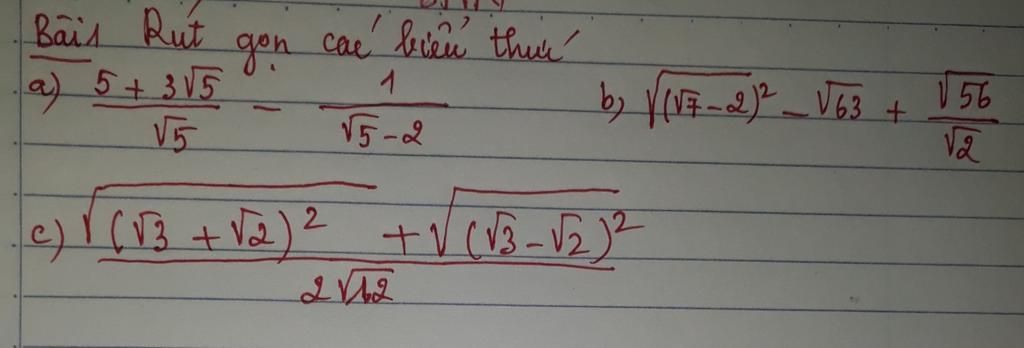 Bài 1 Rút gọn các biểu thức
a) (5 + 3√5)/√5 - 1/(√5 - 2) b) √((√7 - 2)²) - √63 + √56/√2
c) (√((√3 + √2)²) + √((√3 - √2)²))/(2√12)